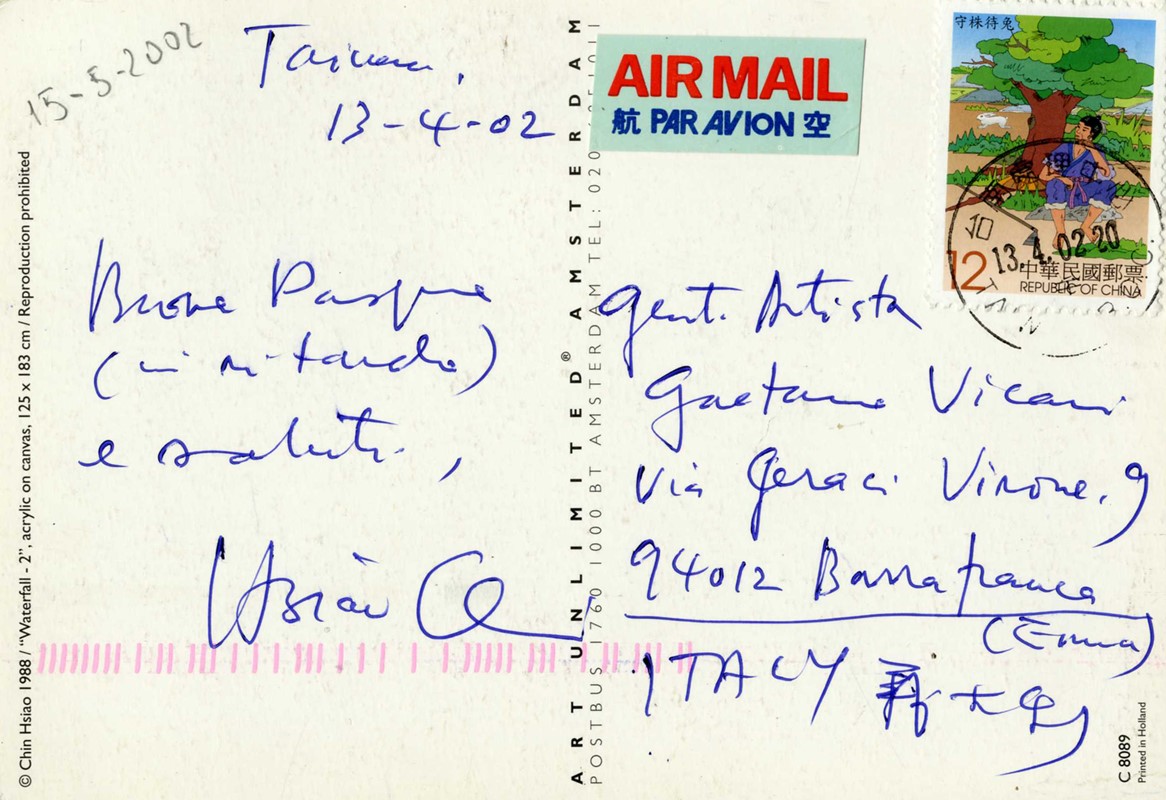 15-5-2002
Taiwan,
13-4-02
Buona Pasqua
(in ritardo)
e saluti,
Hsiao
© Chin Hsiao 1988 / "Waterfall - 2", acrylic on canvas, 125 x 183 cm / Reproduction prohibited
ART UNLIMITED® AMSTERDAM
POSTBUS 1760 1000 BT AMSTERDAM TEL: 020
AIR MAIL
航 PAR AVION 空
守株待兔
13.4.02.20
12
中華民國郵票
REPUBLIC OF CHINA
Gent. Artista
Gaetano Vicari
Via Geraci Virone, 9
94012 Barrafranca
(Enna)
ITALY
C 8089
Printed in Holland